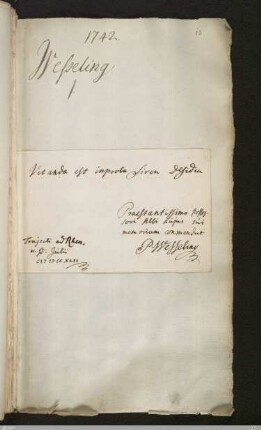 1742.
Wesseling
Vitanda est inproba Siren Desidia
Praestantissimo posses-
sori Albi hujus sui
memoriam commendat
PWesseling
Trajecti ad Rhen.